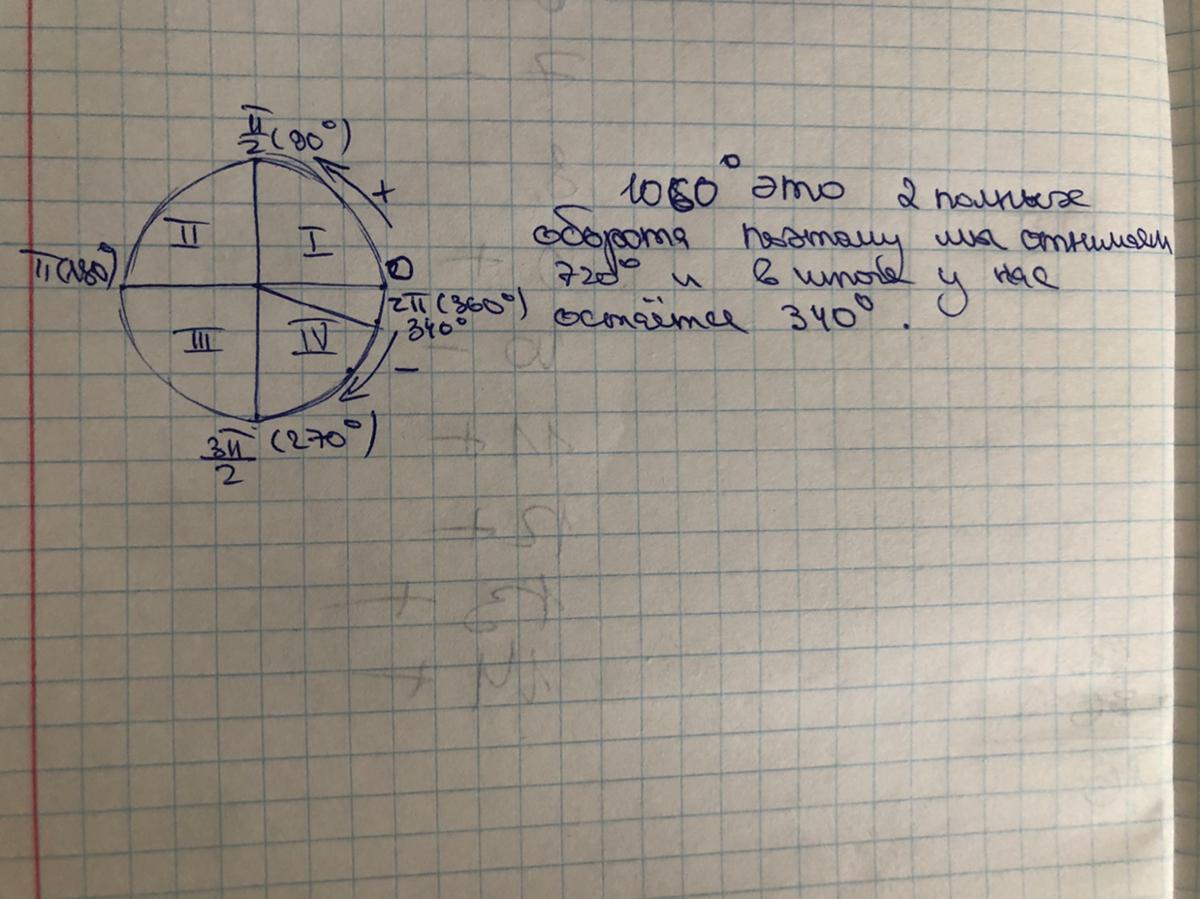 π/2 (90°)
+
II
I
π(180°)
0
2π (360°)
340°
III
IV
−
3π/2 (270°)
1060° это 2 полных
оборота поэтому мы отнимаем
720° и в итоге у нас
остаётся 340°.
7 -
+
10 -
11 +
12 +
13 +
14 +